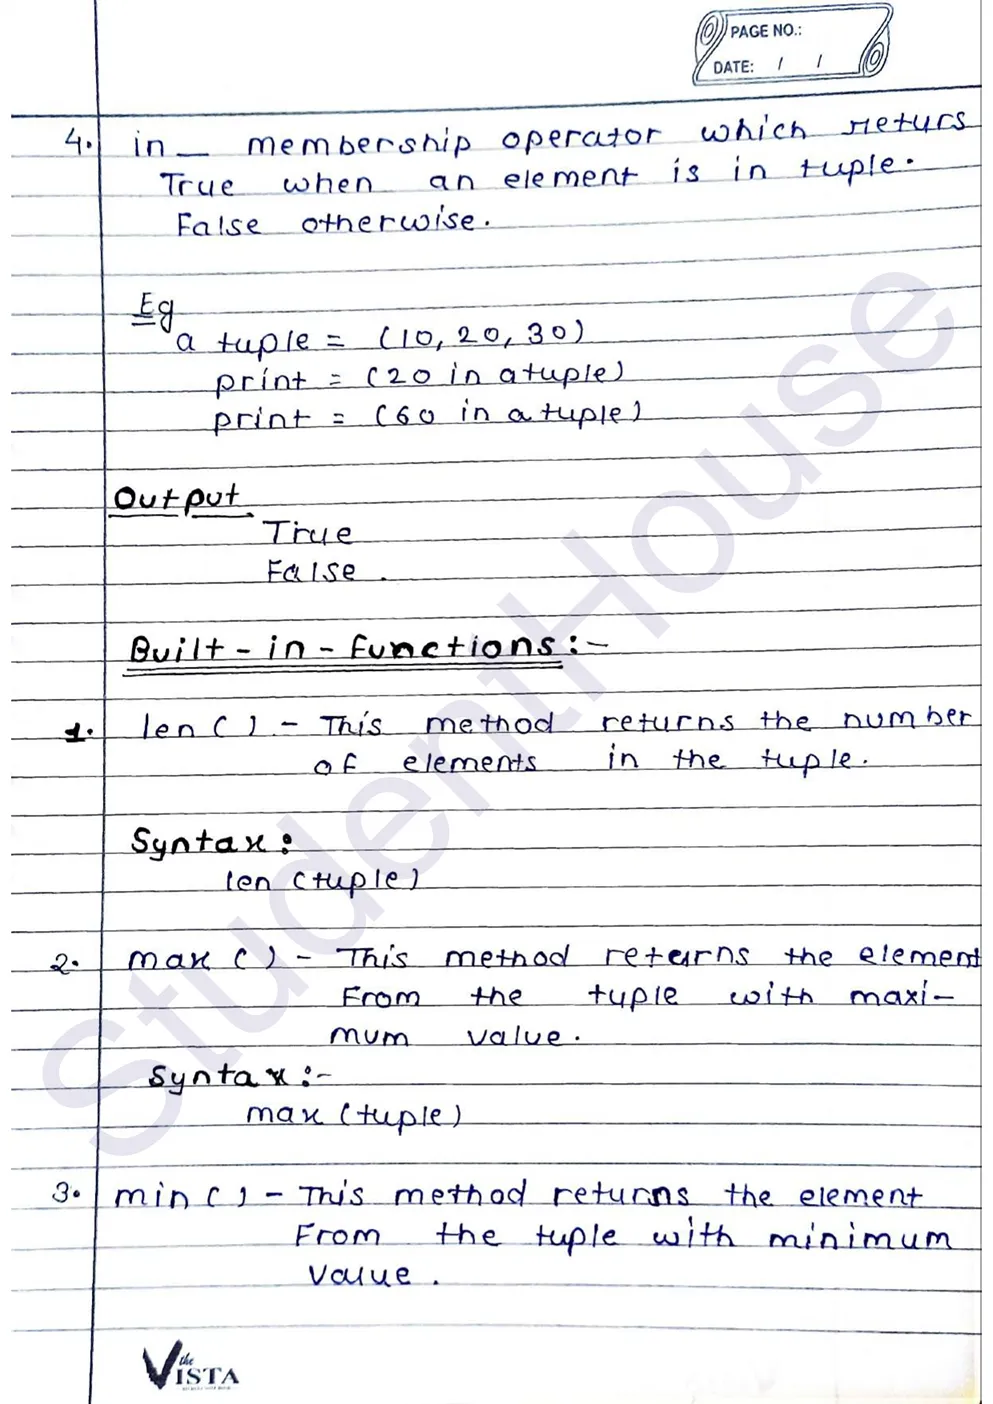 PAGE NO.:
DATE: / /
4. in — membership operator which returs
True when an element is in tuple.
False otherwise.
Eg
a tuple = (10, 20, 30)
print = (20 in atuple)
print = (60 in a tuple)
Output
True
False.
Built-in-functions:-
1. len() - This method returns the number
of elements in the tuple.
Syntax:
len (tuple)
2. max() - This method returns the element
From the tuple with maxi-
mum value.
Syntax:-
max (tuple)
3. min() - This method returns the element
From the tuple with minimum
value.
the
VISTA
StudentHouse